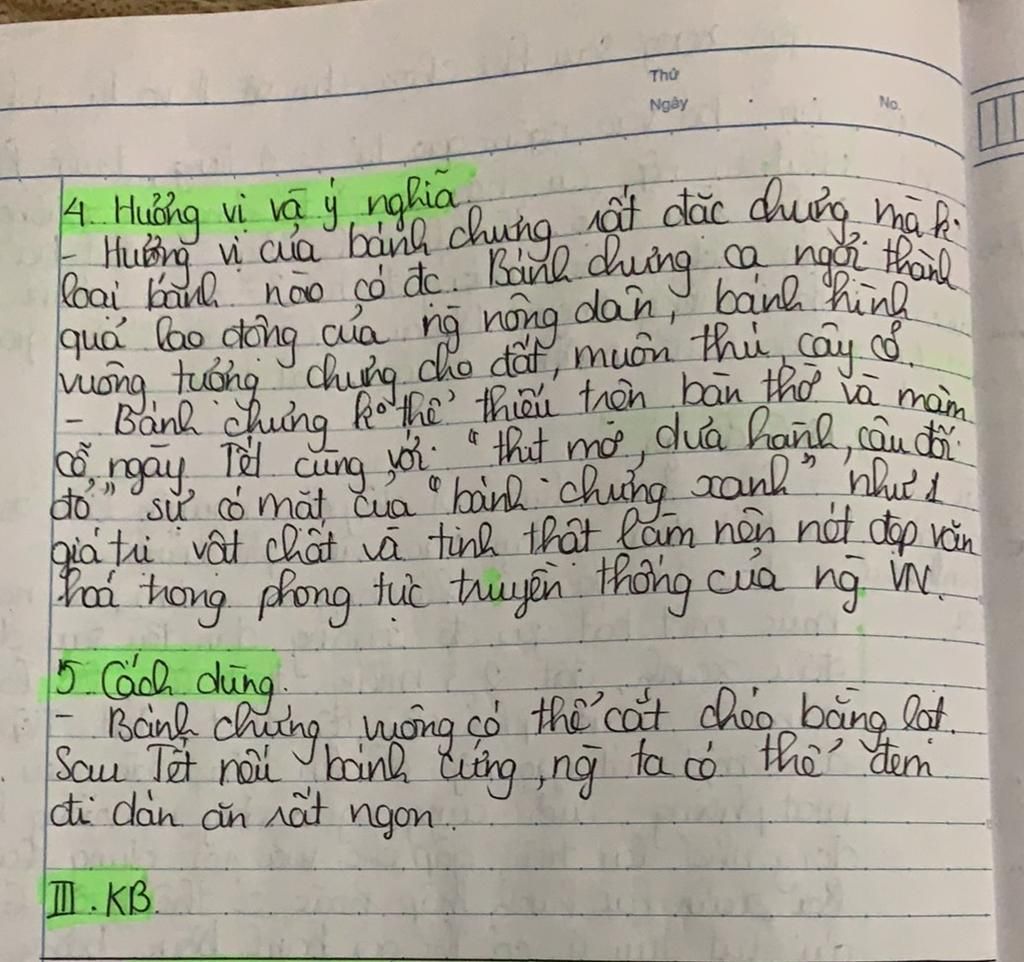 Thứ
Ngày
No.
4. Hương vị và ý nghĩa
- Hương vị của bánh chưng rất đặc chưng mà k
loại bánh nào có đc. Bánh chưng ca ngợi thành
quả lao động của ng nông dân, bánh hình
vuông tượng chưng cho đất, muôn thú, cây cỏ.
- Bánh chưng ko thể thiếu trên bàn thờ và mâm
cỗ, ngày Tết cùng với "thịt mỡ, dưa hành, câu đối
đỏ" sự có mặt của "bánh chưng xanh" như 1
giá trị vật chất và tinh thật làm nên nét đẹp văn
hoá trong phong tục truyền thống của ng VN.
5. Cách dùng.
- Bánh chưng vuông có thể cắt chéo bằng lạt.
Sau Tết nếu bánh cứng, ng ta có thể đem
đi dán ăn rất ngon.
III. KB